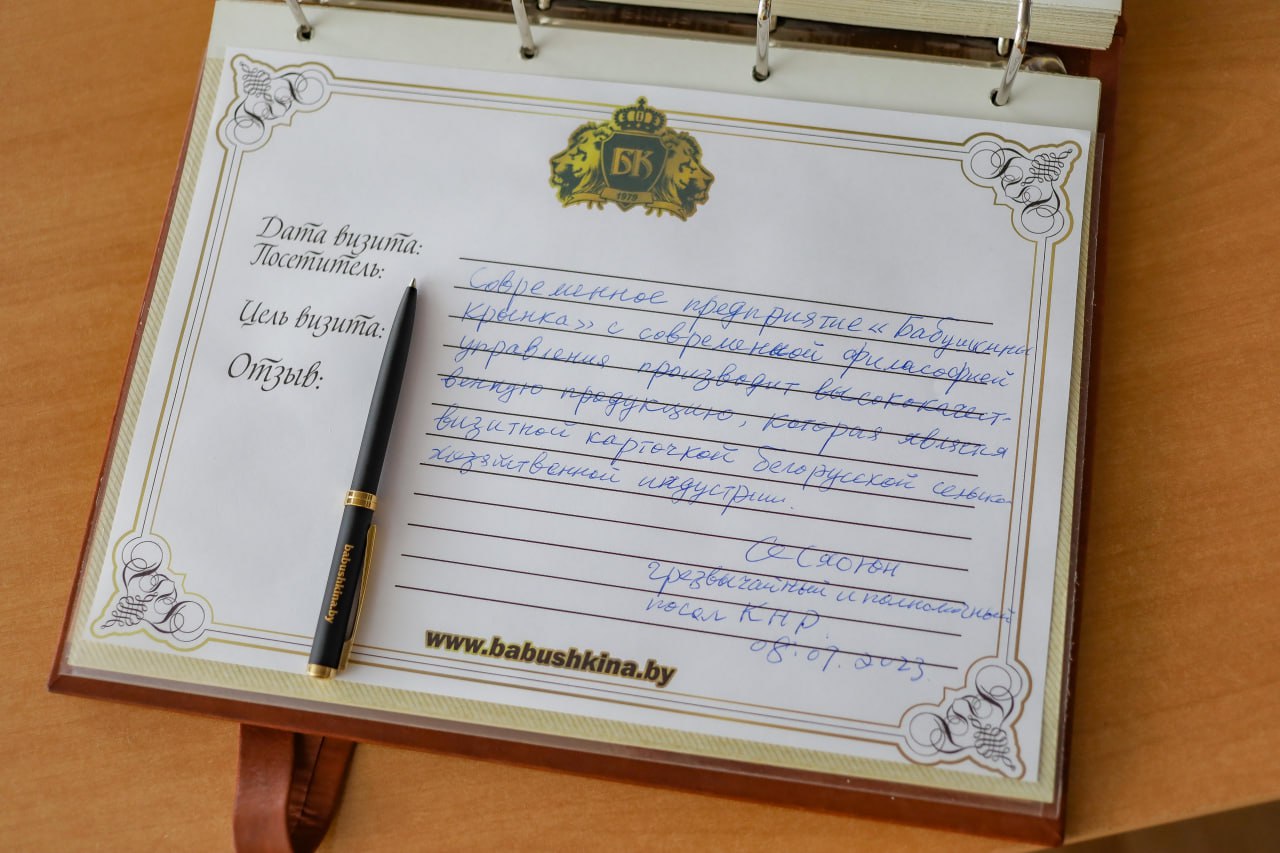 БК
1979
Дата визита:
Посетитель:
Цель визита:
Отзыв:
Современное предприятие «Бабушкина
крынка» с современной философией
управления производит высококачест-
венную продукцию, которая является
визитной карточкой белорусской сельско-
хозяйственной индустрии.
Се Сяоюн
Чрезвычайный и полномочный
посол КНР.
08.09.2023.
babushkina.by
www.babushkina.by